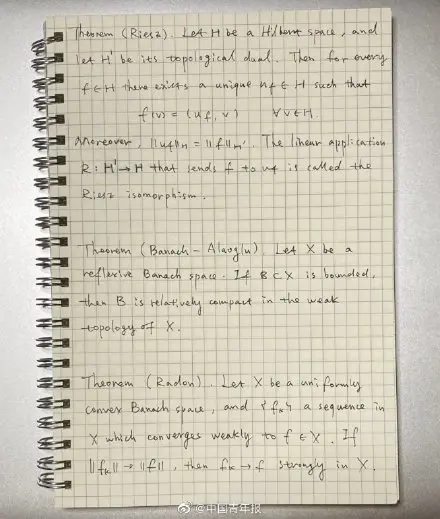 Theorem (Riesz). Let H be a Hilbert space, and
let H' be its topological dual. Then for every
f∈H there exists a unique u_f ∈ H such that
f(v) = (u_f, v) ∀v∈H.
Moreover, ||u_f||_H = ||f||_H'. The linear application
R: H' → H that sends f to u_f is called the
Riesz isomorphism.
Theorem (Banach - Alaoglu). Let X be a
reflexive Banach space. If B ⊂ X is bounded,
then B is relatively compact in the weak
topology of X.
Theorem (Radon). Let X be a uniformly
convex Banach space, and {f_k} a sequence in
X which converges weakly to f ∈ X. If
||f_k|| → ||f||, then f_k → f strongly in X.
@中国青年报